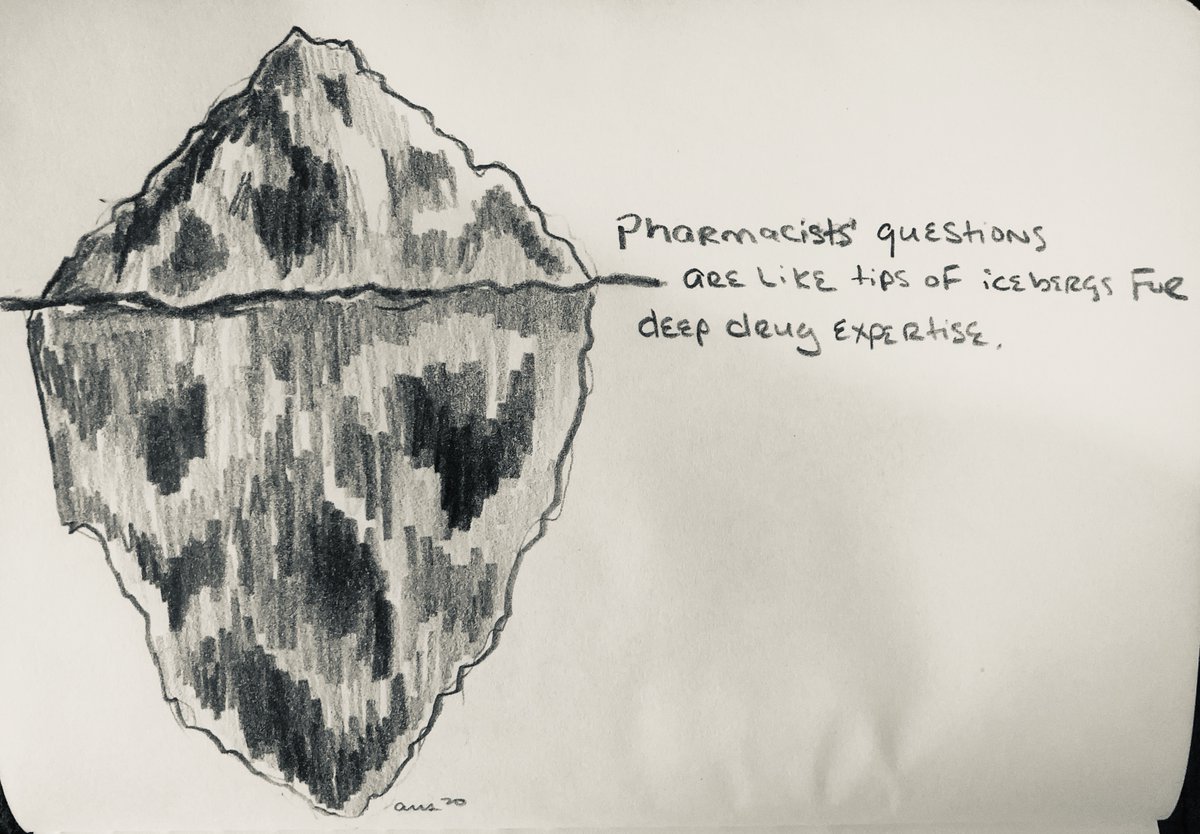 Pharmacists' questions
are like tips of icebergs Fur
deep drug expertise.